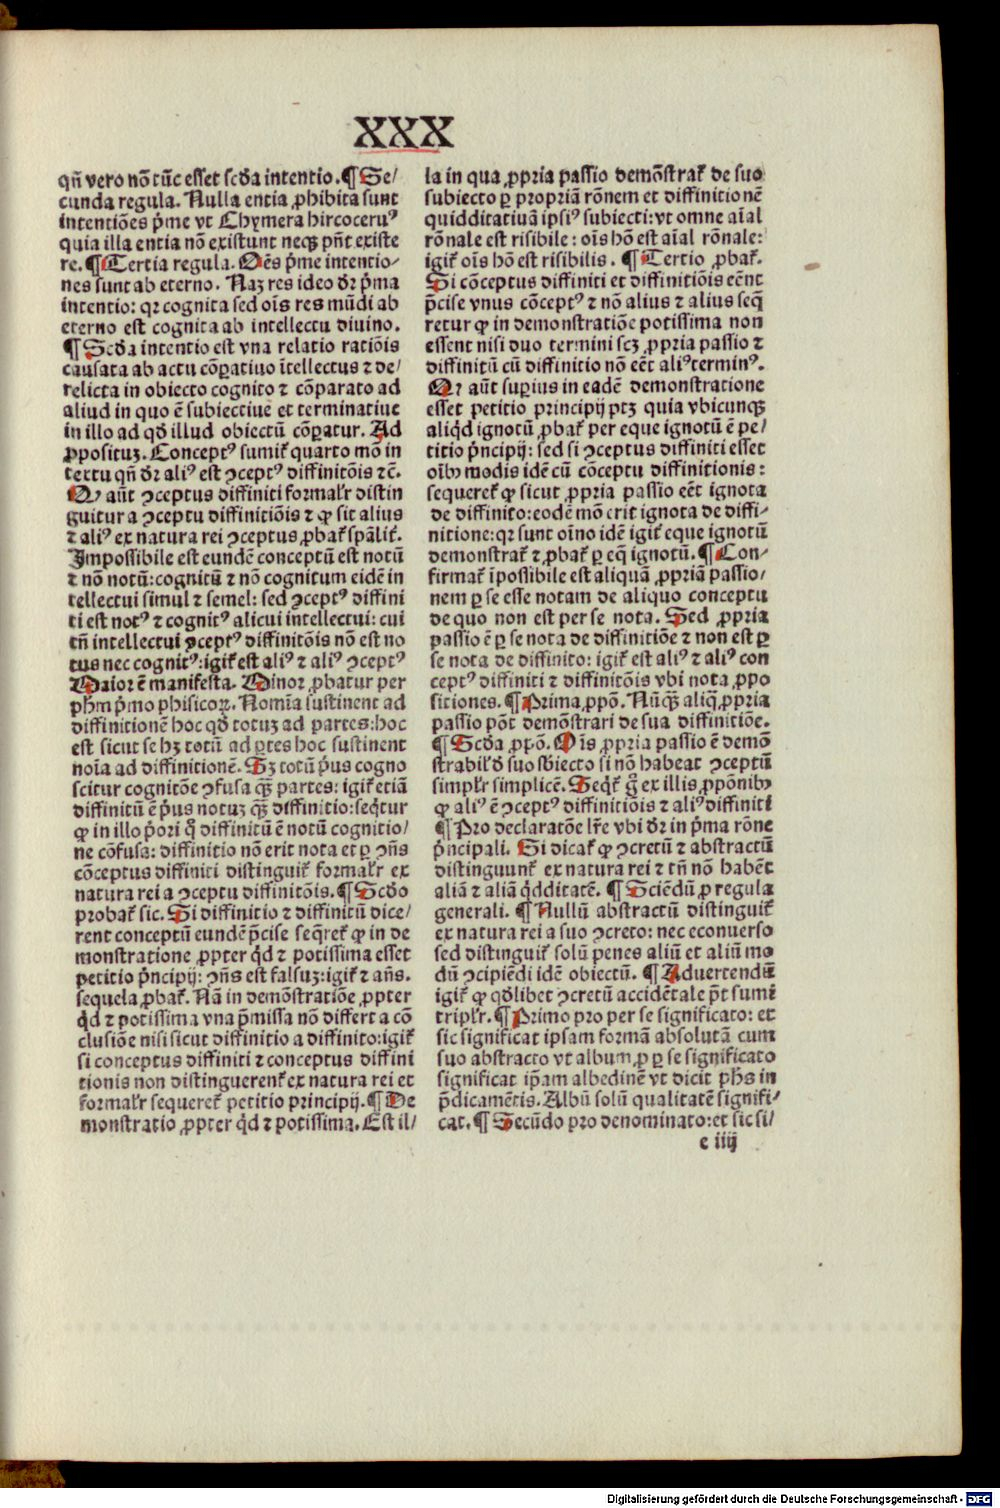 XXX
qn̄ vero nō tūc esset scḋa intentio. ¶ Se/
cunda regula. Nulla entia ꝓhibita sunt
intentiōes p̄me vt Chymera hircoceruꝰ
quia illa entia nō existunt neqꝫ pn̄t existe
re. ¶ Tertia regula. Oēs p̄me intentio-
nes sunt ab eterno. Naꝫ res ideo dr̄ p̄ma
intentio: qꝛ cognita sed oīs res mūdi ab
eterno est cognita ab intellectu diuino.
¶ Scḋa intentio est vna relatio ratiōis
causata ab actu cōꝑatiuo ītellectus ⁊ de/
relicta in obiecto cognito ⁊ cōparato ad
aliud in quo ē subiectiue et terminatiue
in illo ad qḋ illud obiectū cōꝑatur. Ad
ꝓposituꝫ. Conceptꝰ sumit̄ quarto mō in
textu qn̄ dr̄ aliꝰ est ↄceptꝰ diffinitōis ⁊c̄.
Qꝙ aūt ↄceptus diffiniti formalr̄ distin
guitur a ↄceptu diffinitiōis ⁊ ꝙ sit alius
⁊ aliꝰ ex natura rei ↄceptus ꝓbat̄ spāliṫ.
Impossibile est eundē conceptū est notū
⁊ nō notū: cognitū ⁊ nō cognitum eidē in
tellectui simul ⁊ semel: sed ↄceptꝰ diffini
ti est notꝰ ⁊ cognitꝰ alicui intellectui: cui
tn̄ intellectui ↄceptꝰ diffinitōis nō est no
tus nec cognitꝰ: igit̄ est aliꝰ ⁊ aliꝰ ↄceptꝰ
Maior ē manifesta. Minor ꝓbatur per
ph̄m p̄mo phisicoꝝ. Nomīa sustinent ad
diffinitionē hoc qḋ totuꝫ ad partes: hoc
est sicut se hꝫ totū ad ꝑtes hoc sustinent
noīa ad diffinitionē. Sꝫ totū p̄us cogno
scitur cognitōe ↄfusa qꝫ̄ partes: igit̄ etiā
diffinitū ē p̄us notuꝫ qꝫ̄ diffinitio: seq̄tur
ꝙ in illo p̄ori qͦ diffinitū ē notū cognitio/
ne cōfusa: diffinitio nō erit nota et ꝑ ↄn̄s
cōceptus diffiniti distinguit̄ formalr̄ ex
natura rei a ↄceptu diffinitōis. ¶ Scḋo
probat̄ sic. Si diffinitio ⁊ diffinitū dice/
rent conceptū eundē p̄cise seq̄ret̄ ꝙ in de
monstratione ꝓpter q̇d ⁊ potissima esset
petitio p̄ncipij: ↄn̄s est falsuꝫ: igit̄ ⁊ an̄s.
sequela ꝓbat̄. Nā in demōstratiōe ꝓpter
q̇d ⁊ potissima vna p̄missa nō differt a cō
clusiōe nisi sicut diffinitio a diffinito: igit̄
si conceptus diffiniti ⁊ conceptus diffini
tionis non distinguerent̄ ex natura rei et
formalr̄ sequeret̄ petitio principij. ¶ De
monstratio ꝓpter q̇d ⁊ potissima. Est il/
la in qua ꝓpria passio demōstrat̄ de suo
subiecto ꝑ propriā rōnem et diffinitionē
quidditatiuā ipsiꝰ subiecti: vt omne aīal
rōnale est risibile: oīs hō est aīal rōnale:
igit̄ oīs hō est risibilis. ¶ Tertio ꝓbat̄.
Si cōceptus diffiniti et diffinitiōis eēnt
p̄cise vnus cōceptꝰ ⁊ nō alius ⁊ alius seq̄
retur ꝙ in demonstratiōe potissima non
essent nisi duo termini scꝫ ꝓpria passio ⁊
diffinitū cū diffinitio nō eēt aliꝰ terminꝰ.
Qꝙ aūt suꝑius in eadē demonstratione
esset petitio principij ptꝫ quia vbicunqꝫ
aliq̇d ignotū ꝓbat̄ per eque ignotū ē pe/
titio p̄ncipij: sed si ↄceptus diffiniti esset
oībꝫ modis idē cū cōceptu diffinitionis:
sequeret̄ ꝙ sicut ꝓpria passio eēt ignota
de diffinito: eodē mō erit ignota de diffi-
nitione: qꝛ sunt oīno idē igit̄ eque ignotū
demonstrat̄ ⁊ ꝓbat̄ ꝑ eq̄ ignotū. ¶ Con-
firmat̄ īpossibile est aliquā ꝓpriā passio/
nem ꝑ se esse notam de aliquo conceptu
de quo non est per se nota. Sed ꝓpria
passio ē ꝑ se nota de diffinitiōe ⁊ non est ꝑ
se nota de diffinito: igit̄ est aliꝰ ⁊ aliꝰ con
ceptꝰ diffiniti ⁊ diffinitōis vbi nota ꝓpo
sitiones. ¶ Prima ꝓpō. Nūqꝫ̄ aliq̄ ꝓpria
passio pōt demōstrari de sua diffinitiōe.
¶ Scḋa ꝓpō. Oīs ꝓpria passio ē demō
strabilꝭ ḋ suo sb̄iecto si nō habeat ↄceptū
simplr̄ simplicē. Seq̄t̄ g̊ ex illis ꝓpōnibꝫ
ꝙ aliꝰ ē ↄceptꝰ diffinitiōis ⁊ aliꝰ diffiniti
¶ Pro declaratōe lr̄e vbi dr̄ in p̄ma rōne
p̄ncipali. Si dicat̄ ꝙ ↄcretū ⁊ abstractū
distinguunt̄ ex natura rei ⁊ tn̄ nō habēt
aliā ⁊ aliā q̇dditatē. ¶ Sciēdū ꝓ regula
generali. ¶ Nullū abstractū distinguit̄
ex natura rei a suo ↄcreto: nec econuerso
sed distinguit̄ solū penes aliū et aliū mo
dū ↄcipiēdi idē obiectū. ¶ Aduertendū
igit̄ ꝙ qḋlibet ↄcretū accidētale p̄t sumi
triplr̄. ¶ Primo pro per se significato: et
sic significat ipsam formā absolutā cum
suo abstracto vt album ꝓ ꝑ se significato
significat ip̄am albedinē vt dicit ph̄s in
p̄dicamētis. Albū solū qualitatē signifi-
cat. ¶ Secūdo pro denominato: et sic si/
e iiij
Digitalisierung gefördert durch die Deutsche Forschungsgemeinschaft - DFG